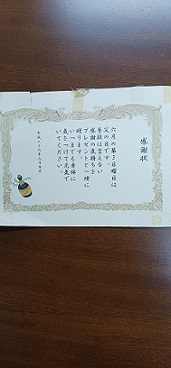 感謝状
六月の第3日曜日は
父の日です。
普段は言えない
感謝の気持ちを
プレゼントと一緒に
贈ります。
いつまでも身体に
気をつけて元気で
いてください。